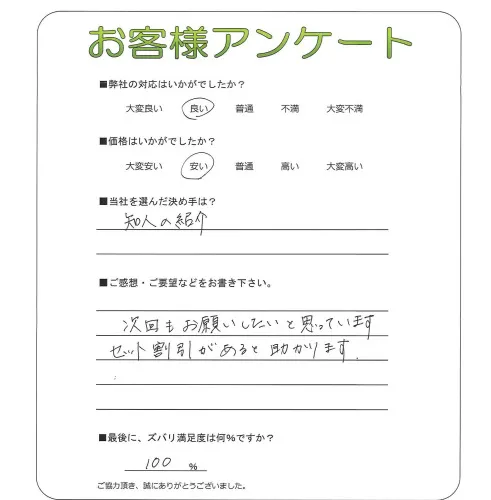 お客様アンケート
■弊社の対応はいかがでしたか?
大変良い 良い 普通 不満 大変不満
■価格はいかがでしたか?
大変安い 安い 普通 高い 大変高い
■当社を選んだ決め手は?
知人の紹介
■ご感想・ご要望などをお書き下さい。
次回もお願いしたいと思っています
セット割引があると助かります.
■最後に、ズバリ満足度は何%ですか?
100 %
ご協力頂き、誠にありがとうございました。